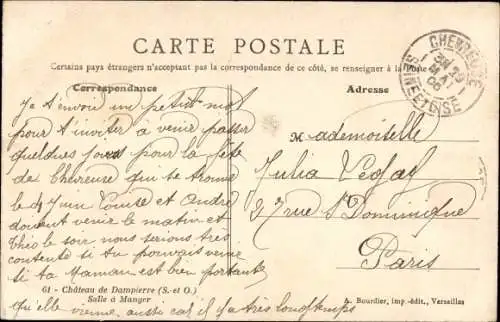 CARTE POSTALE
Certains pays étrangers n'acceptant pas la correspondance de ce côté, se renseigner à la Poste
Correspondance
Adresse
CHEVREUSE
SEINE ET OISE
Je t'envoi une petit mot
pour t'inviter à venir passer
quelques jours pour la fête
de Chevreuse qui se trouve
le 4 Juin Louise et André
doivent venir le matin et
Théo le soir, nous serions très
contente si tu pouvais venir
si ta Maman est bien portante
qu'elle vienne aussi car il y a très longtemps
Mademoiselle
Julia
27 rue St Dominique
Paris
61 - Château de Dampierre (S.-et-O.)
Salle à Manger
A. Bourdier, imp.-édit., Versailles